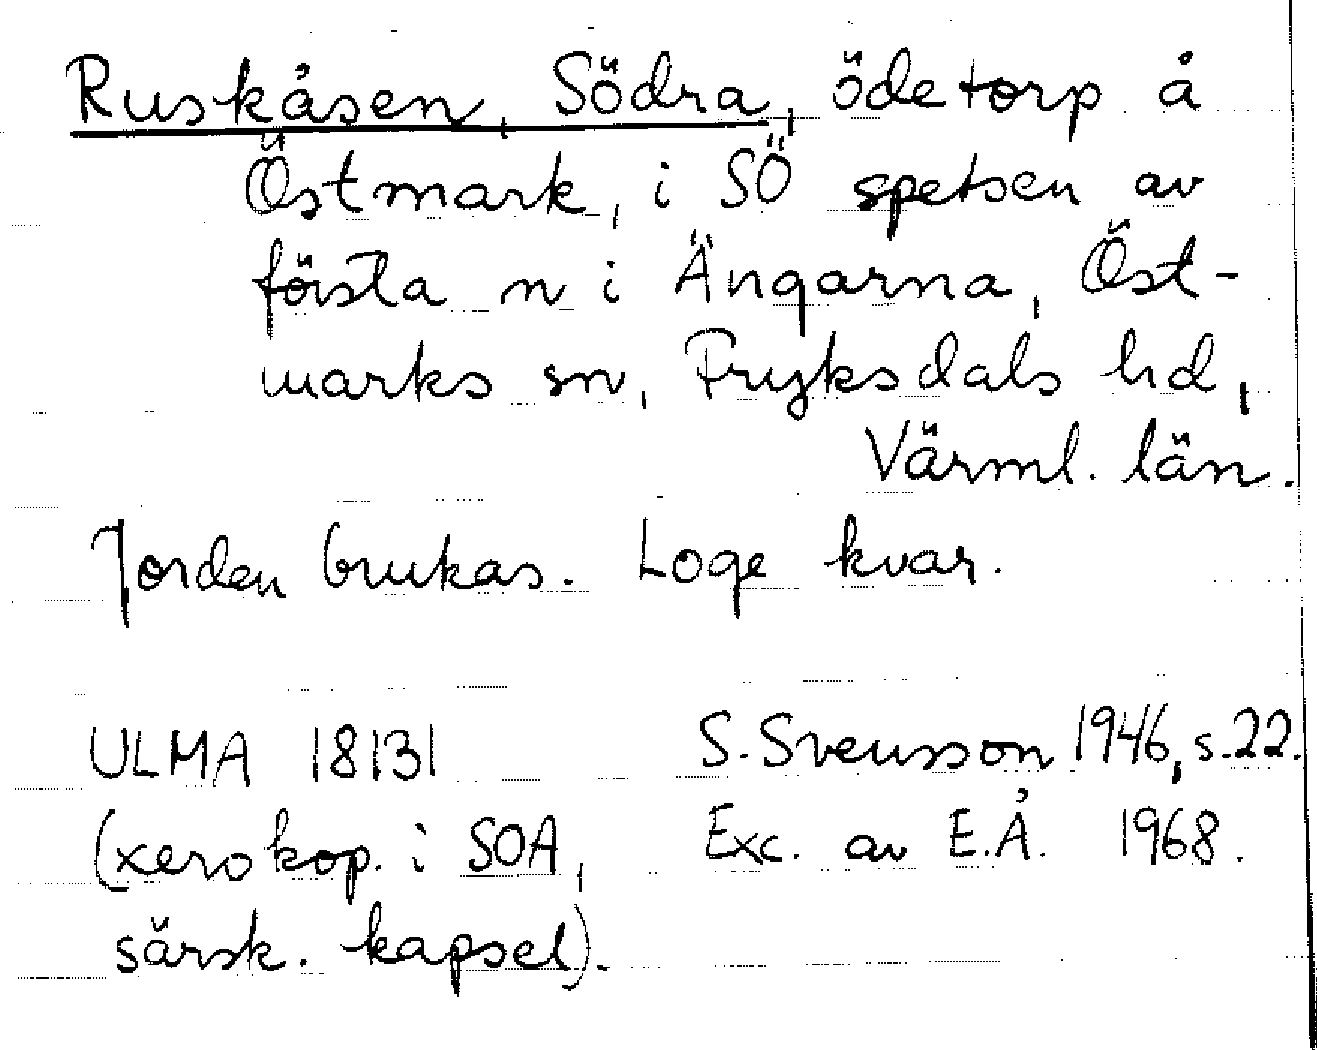 Ruskåsen, Södra, ödetorp å
Östmark, i SÖ spetsen av
första n i Ängarna, Öst-
marks sn, Fryksdals hd,
Värml. län.
Jorden brukas. Loge kvar.
ULMA 18131 S. Svensson 1946, s. 22.
(xerokop. i SOA, Exc. av E.Å. 1968.
särsk. kapsel).